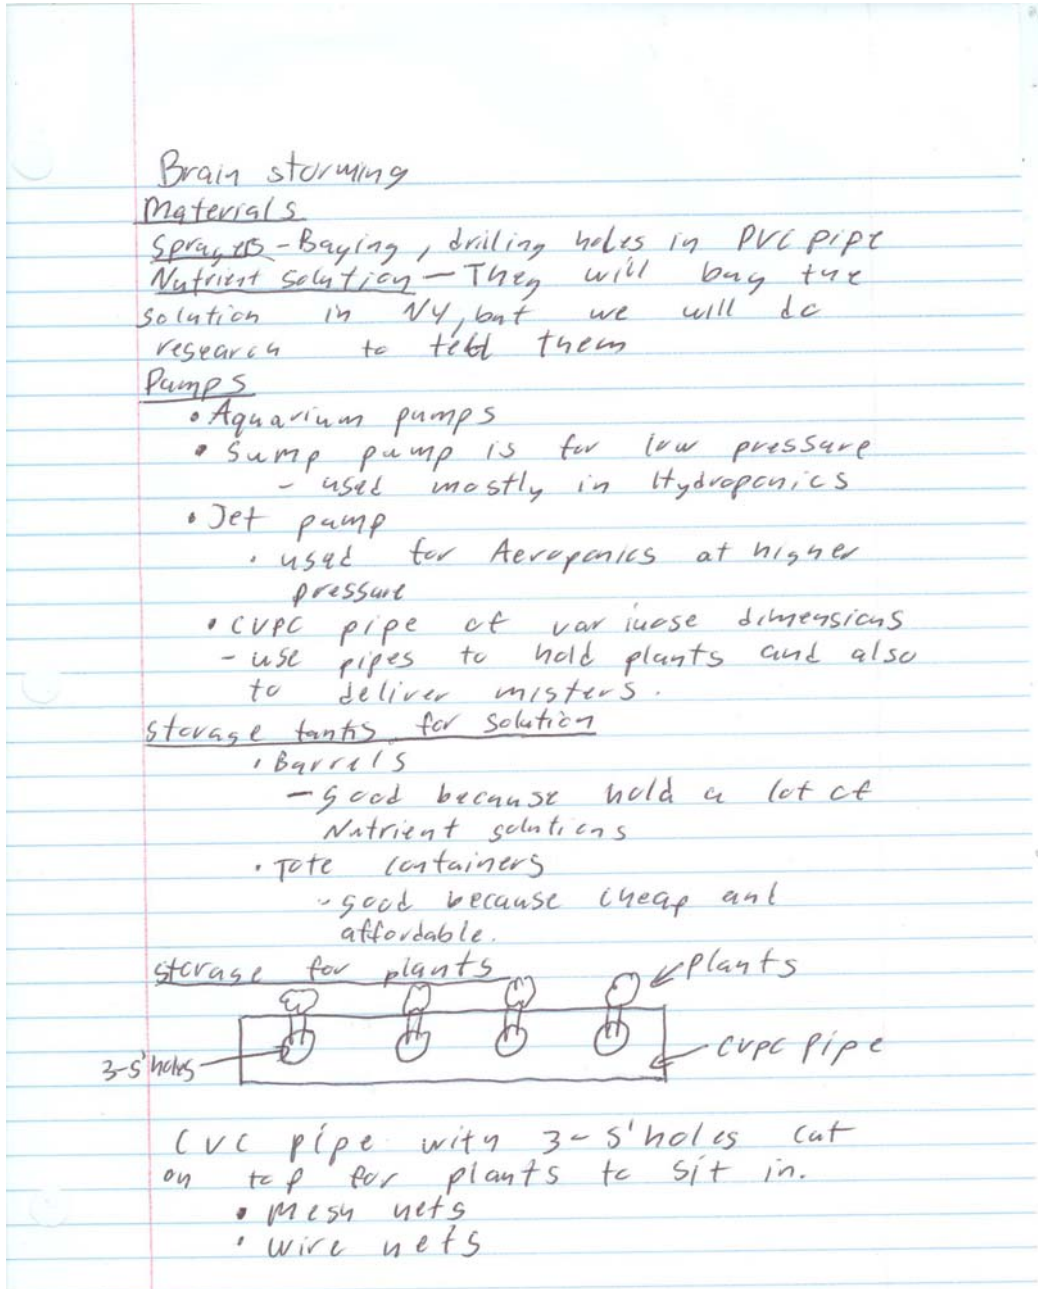 Brain storming
Materials
Sprayers - Baying, driling holes in PVC pipe
Nutrient solution - They will buy the
solution in NY, but we will do
research to tell them
Pumps
• Aquarium pumps
• Sump pump is for low pressure
- used mostly in Hydroponics
• Jet pump
• used for Aeroponics at higher
pressure
• CVPC pipe of variuose dimensions
- use pipes to hold plants and also
to deliver misters.
Storage tanks for solution
• Barrels
- good because hold a lot of
Nutrient solutions
• Tote containers
- good because cheap and
affordable.
storage for plants
Plants
3-5' holes
CVPC Pipe
CVC pipe with 3-5' holes cut
on top for plants to sit in.
• Mesh nets
• wire nets